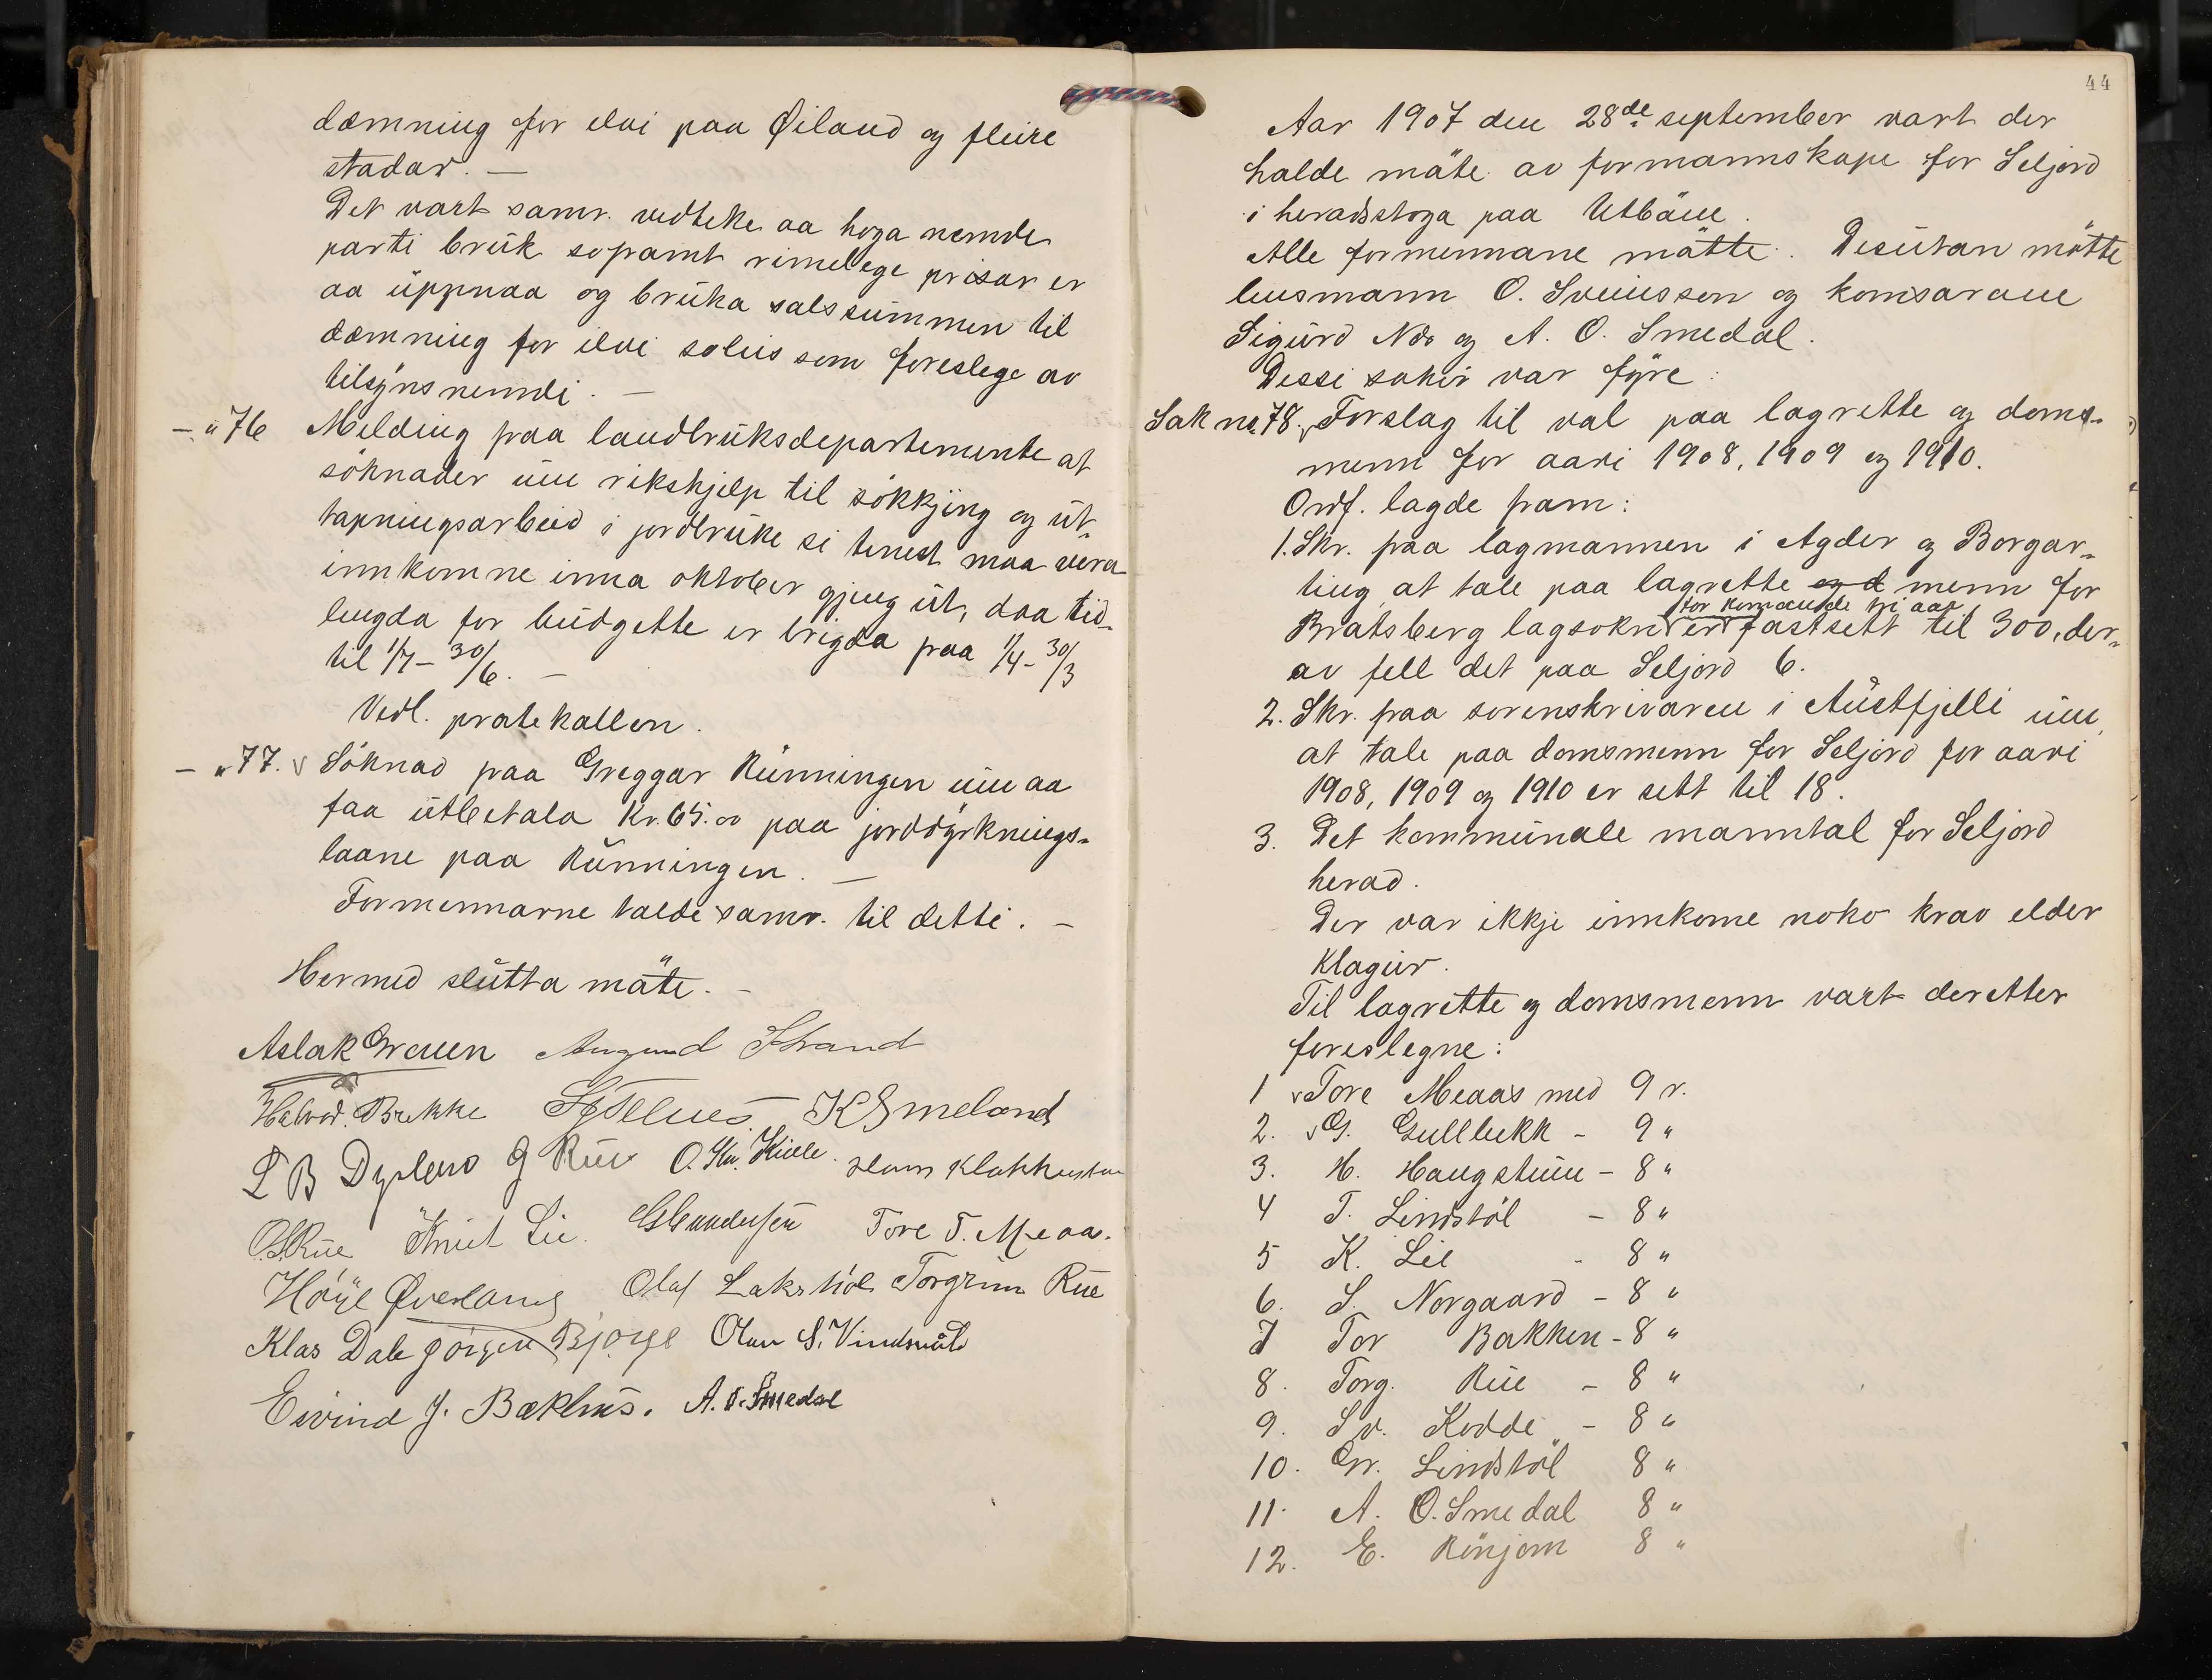 dæmning for elvi paa Øiland og fleire
stadar. —
Det vart samr. vedteke aa hoga nemde
parti bruk sopramt rimelege prisar er
aa üppnaa og brüka salssümmen til
dæmning for elvi soleis som foreslege av
tilsynsnemdi. —
— " 76 Melding fraa landbrüksdepartemente at
söknader üm rikshjelp til sökkjing og üt-
tapningsarbeid i jordbrüke si tenest maa vera
innkomne inna oktober gjeng üt, daa tid-
lengda for büdgette er brigda fraa 1/4 - 30/3
til 1/7 - 30/6. —
Vedl. protekollen.
— " 77. v Söknad fraa Greggar Rünningen üm aa
faa ütbetala Kr. 65.00 paa jorddyrknings-
laane paa Rünningen. —
Formennarne raade samr. til detti. —
Hermed slütta möte. —
Aslak Grauen Augund Strand
Halvor Brekke K Smeland
L B Dyrland G Rue O. Kn. Kivle
O.S.Rue Knut Lie. G Gundersen Tore T. Meaas.
Höye Överland Olaf Lakshol Torgrim Rue
Klas Dale Jörgen Bjorge Olav S. Vindsvåle
Eivind J. Bækhus. A. O. Smedal
44
Aar 1907 den 28de september vart der
halde möte av formannskape for Seljord
i heradsstoga paa Utböen.
Alle formennane mötte. Desütan mötte
lensmann O. Sveinsson og komsarane
Sigürd Nes og A. O. Smedal.
Dessi sakir var fyre:
Sak no. 78. v Forslag til val paa lagrette og doms-
menn for aari 1908, 1909 og 1910.
Ordf. lagde fram:
1. Skr. fraa lagmannen i Agder og Borgar-
ting, at tale paa lagrette og d menn for
for komande tri aar
Bratsberg lagsokn er fastsett til 300, der-
av fell det paa Seljord 6.
2. Skr. fraa sorenskrivaren i Aüstfjelli üm,
at tale paa domsmenn for Seljord for aari
1908, 1909 og 1910 er sett til 18.
3. Det kommünale manntal for Seljord
herad.
Der var ikkje innkome noko krav elder
Klagür.
Til lagrette og domsmenn vart deretter
foreslegne:
1 v Tore Meaas med 9 r.
2. v G. Gullbekk - 9 "
3. H. Haugstüm - 8 "
4 T. Lindstöl - 8 "
5 K. Lie - 8 "
6. S. Norgaard - 8 "
7 Tor Bakken - 8 "
8. Torg. Rüe - 8 "
9. Sv. Kodde - 8 "
10. Gr. Lindstöl 8 "
11. A. O. Smedal 8 "
12. E. Rönjom 8 "